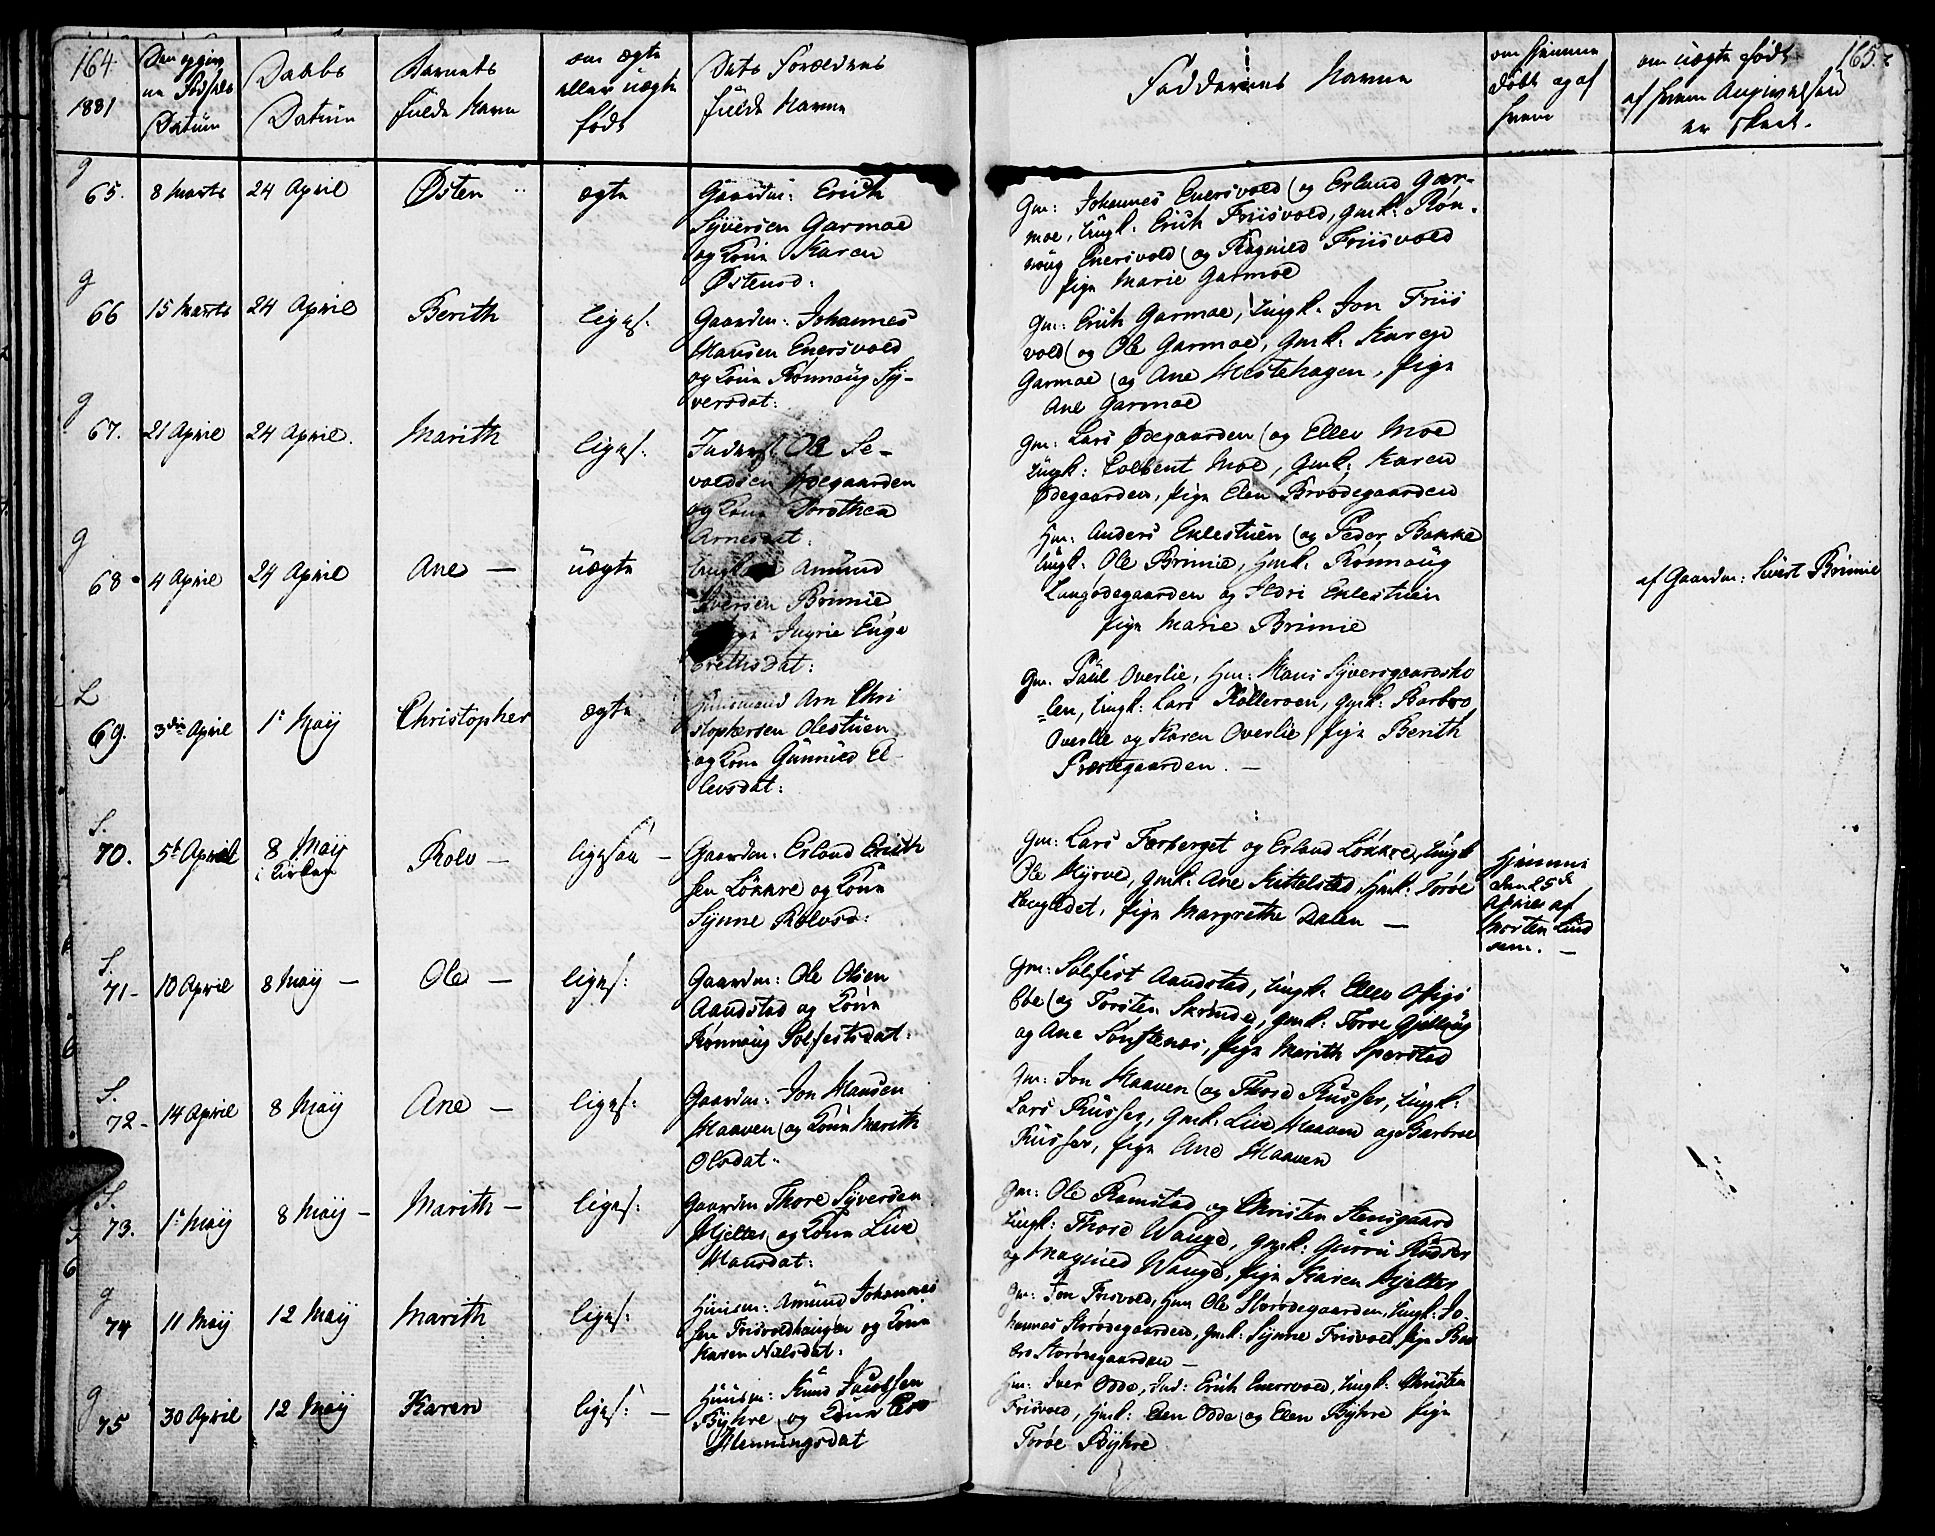 164
1881
Datum
Daabs
Datum
Barnets
fulde Navn
om ægte
eller uægte
født
Dets Forældres
fulde Navne
Faddernes Navne
om hjemme
døbt og af
hvem
om uægte født
af hvem Angivelsen
er skeet.
165
g
65. 8 Marts 24 April Østen ægte
Gaardm: Erich
Syversen Garmoe
og Kone Karen
Østensd:
Gm: Johannes Enersvold og Erland Gar-
moe, Ungk: Erich Friisvold, Gmk: Røn-
noug Enersvold og Ragnild Friisvold
Pige Marie Garmoe
g
66 15 Marts 24 April Berith liges:
Gaardm: Johannes
Hansen Enersvold
og Kone Rønnoug Sy-
versdat:
Gm: Erich Garmoe, Ungk: Jon Friis
vold og Ole Garmoe, Gmk: Karen
Garmoe og Ane Hestehagen, Pige
Ane Garmoe
g
67. 21 April 24 April. Marith liges:
Inderst Ole Se-
voldsen Ødegaarden
og Kone Dorothea
Arnesdat:
Gm: Lars Ødegaarden og Ellev Moe
Ungk: Colbent Moe, Gmk: Karen
Ødegaarden, Pige Elen Brødegaarden
g
68 4 April 24 April Ane — uægte
Amund
Iversen Brimie
Pige Ingrie Enge
brethsdat:
Hm: Anders Eklestuen og Peder Bakke
Ungk: Ole Brimie, Hmk: Rønnoug
Langødegaarden og Eklestuen
Pige Marie Brimie
af Gaardm: Sivert Brimie
L
69. 3die April 1. May Christopher ægte
Huusmand Arn Chri
stophersen Olestuen
og Kone Gunnild El-
levsdat:
Gm: Paul Overlie, Hm: Hans Syversgaardsho
len, Ungk: Lars Kolleroen, Gmk: Barbro
Overlie og Karen Overlie, Pige Berith
Præstegaarden. —
S.
70. 5t April 8 May
i Kirken
Rolv — ligesaa —
Gaardm: Erland Erich
sen Løkkre og Kone
Synne Rolvsd:
Gm: Lars Forberget og Erland Løkkre, Ungk
Ole Myrve, Gmk: Ane Kittelstad, Hmk: Toroe
Pige Margrethe Dalen —
Hjemme
den 25de
April af
Morten Lund
sem. —
S.
71- 10 April 8 May — Ole — ligesf:
Gaardm: Ole Olsen
Aandstad og Kone
Rønnoug Solfestsdat:
Gm: Solfest Aandstad, Ungk: Ellev Offigs
boe og Torsten Skrinde, Gmk: Toroe Gjelloug
og Ane Sønstenes, Pige Marith Sperstad
S.
72- 14 April 8 May Ane — ligesf:
Gaardm: Jon Hansen
Haaven og Kone Marith
Olsdat:
Gm: Jon Haaven og Thord Rusfer, Ungk:
Lars Rusfer, Gmk: Live Haaven og Barbroe
Rusfer, Pige Ane Haaven
S.
73. 1. May 8 May — Marith — ligesf:
Gaardm Thore Syversen
Hjeltes og Kone Live
Hansdat:
Gm: Ole Ramstad og Christen Stensgaard
Ungk: Thord Wange, Gmk: Guru Rusfer
og Magnild Wange, Pige Karen Hjeltes
g
74 11 May 12 May Marith ligesf:
Huusm: Amund Johannes
sen Frisvoldhaugen og Kone
Karen Nielsdat:
Gm: Jon Frisvold, Hm Ole Storødegaarden, Ungk: Jo
hannes Storødegaarden, Gmk: Synne Frisvold, Pige Bar
bro Storødegaarden —
g
75 30 April 12 May Karen ligesf: —
Huusm: Knud Jacobsen
Byhre og Kone
Henningsdat
Hm: Iver Odde, Ind: Erich Enersvold, Ungk: Christen
Frisvold, Hmk: Elen Odde og Elen Byhre Pige
Toroe Byhre